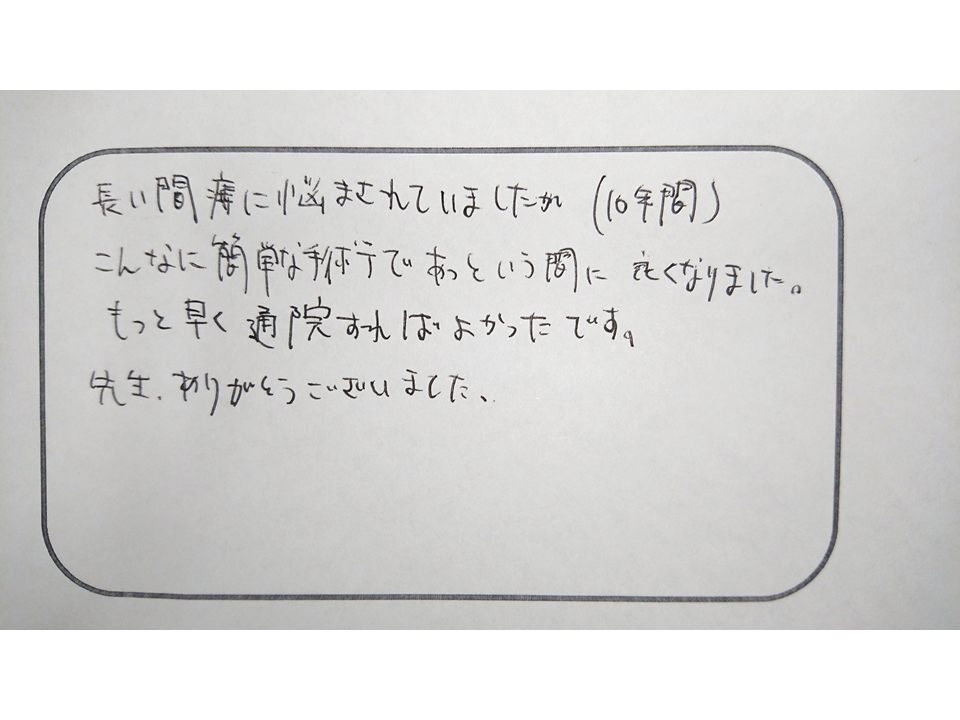 長い間痔に悩まされていましたが (10年間)
こんなに簡単な手術であっという間に 良くなりました。
もっと早く通院すればよかったです。
先生、ありがとうございました、